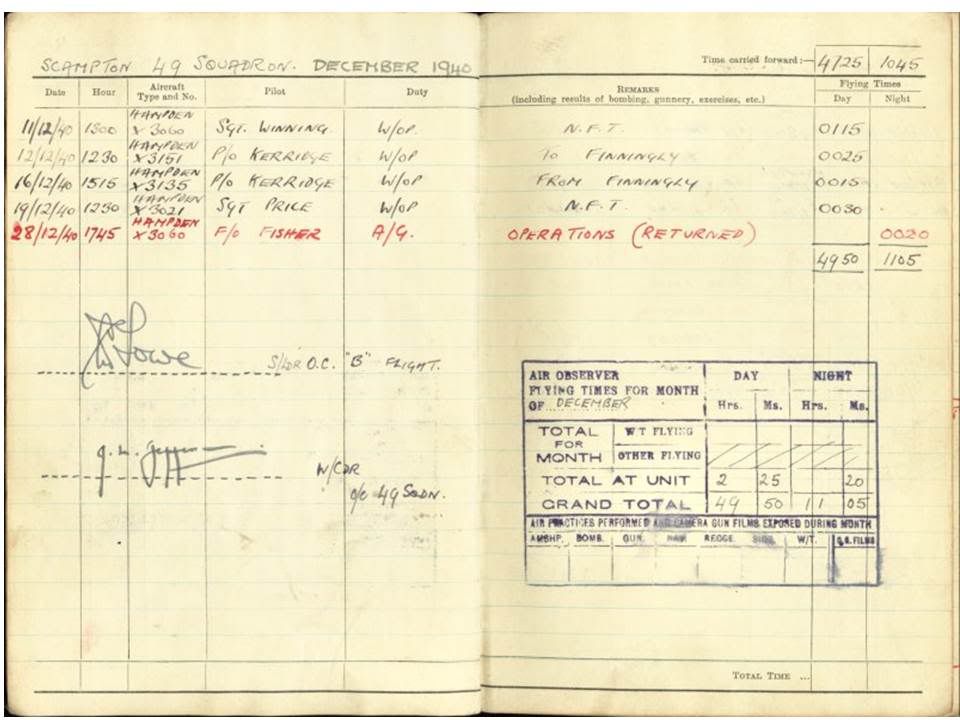 SCAMPTON 49 SQUADRON. DECEMBER 1940
Time carried forward:— 4725 1045
Date Hour Aircraft Type and No. Pilot Duty REMARKS (including results of bombing, gunnery, exercises, etc.) Flying Times Day Night
11/12/40 1300 HAMPDEN X3060 SGT. WINNING. W/OP. N.F.T. 0115
12/12/40 1230 HAMPDEN X3151 P/O KERRIDGE W/OP TO FINNINGLY 0025
16/12/40 1515 HAMPDEN X3135 P/O KERRIDGE W/OP FROM FINNINGLY 0015
19/12/40 1230 HAMPDEN X3021 SGT PRICE W/OP N.F.T. 0030
28/12/40 1745 HAMPDEN X3060 F/O FISHER A/G. OPERATIONS (RETURNED) 0020
4950 1105
Lowe
S/LDR O.C. "B" FLIGHT.
W/CDR
O/C 49 SQDN.
AIR OBSERVER
FLYING TIMES FOR MONTH
OF DECEMBER
DAY NIGHT
Hrs. Ms. Hrs. Ms.
TOTAL FOR MONTH
W T FLYING
OTHER FLYING
TOTAL AT UNIT 2 25 20
GRAND TOTAL 49 50 11 05
AIR PRACTICES PERFORMED AND CAMERA GUN FILMS EXPOSED DURING MONTH
AMSHP. BOMB. GUN. RECCE. W/T. C.G. FILMS
TOTAL TIME ...